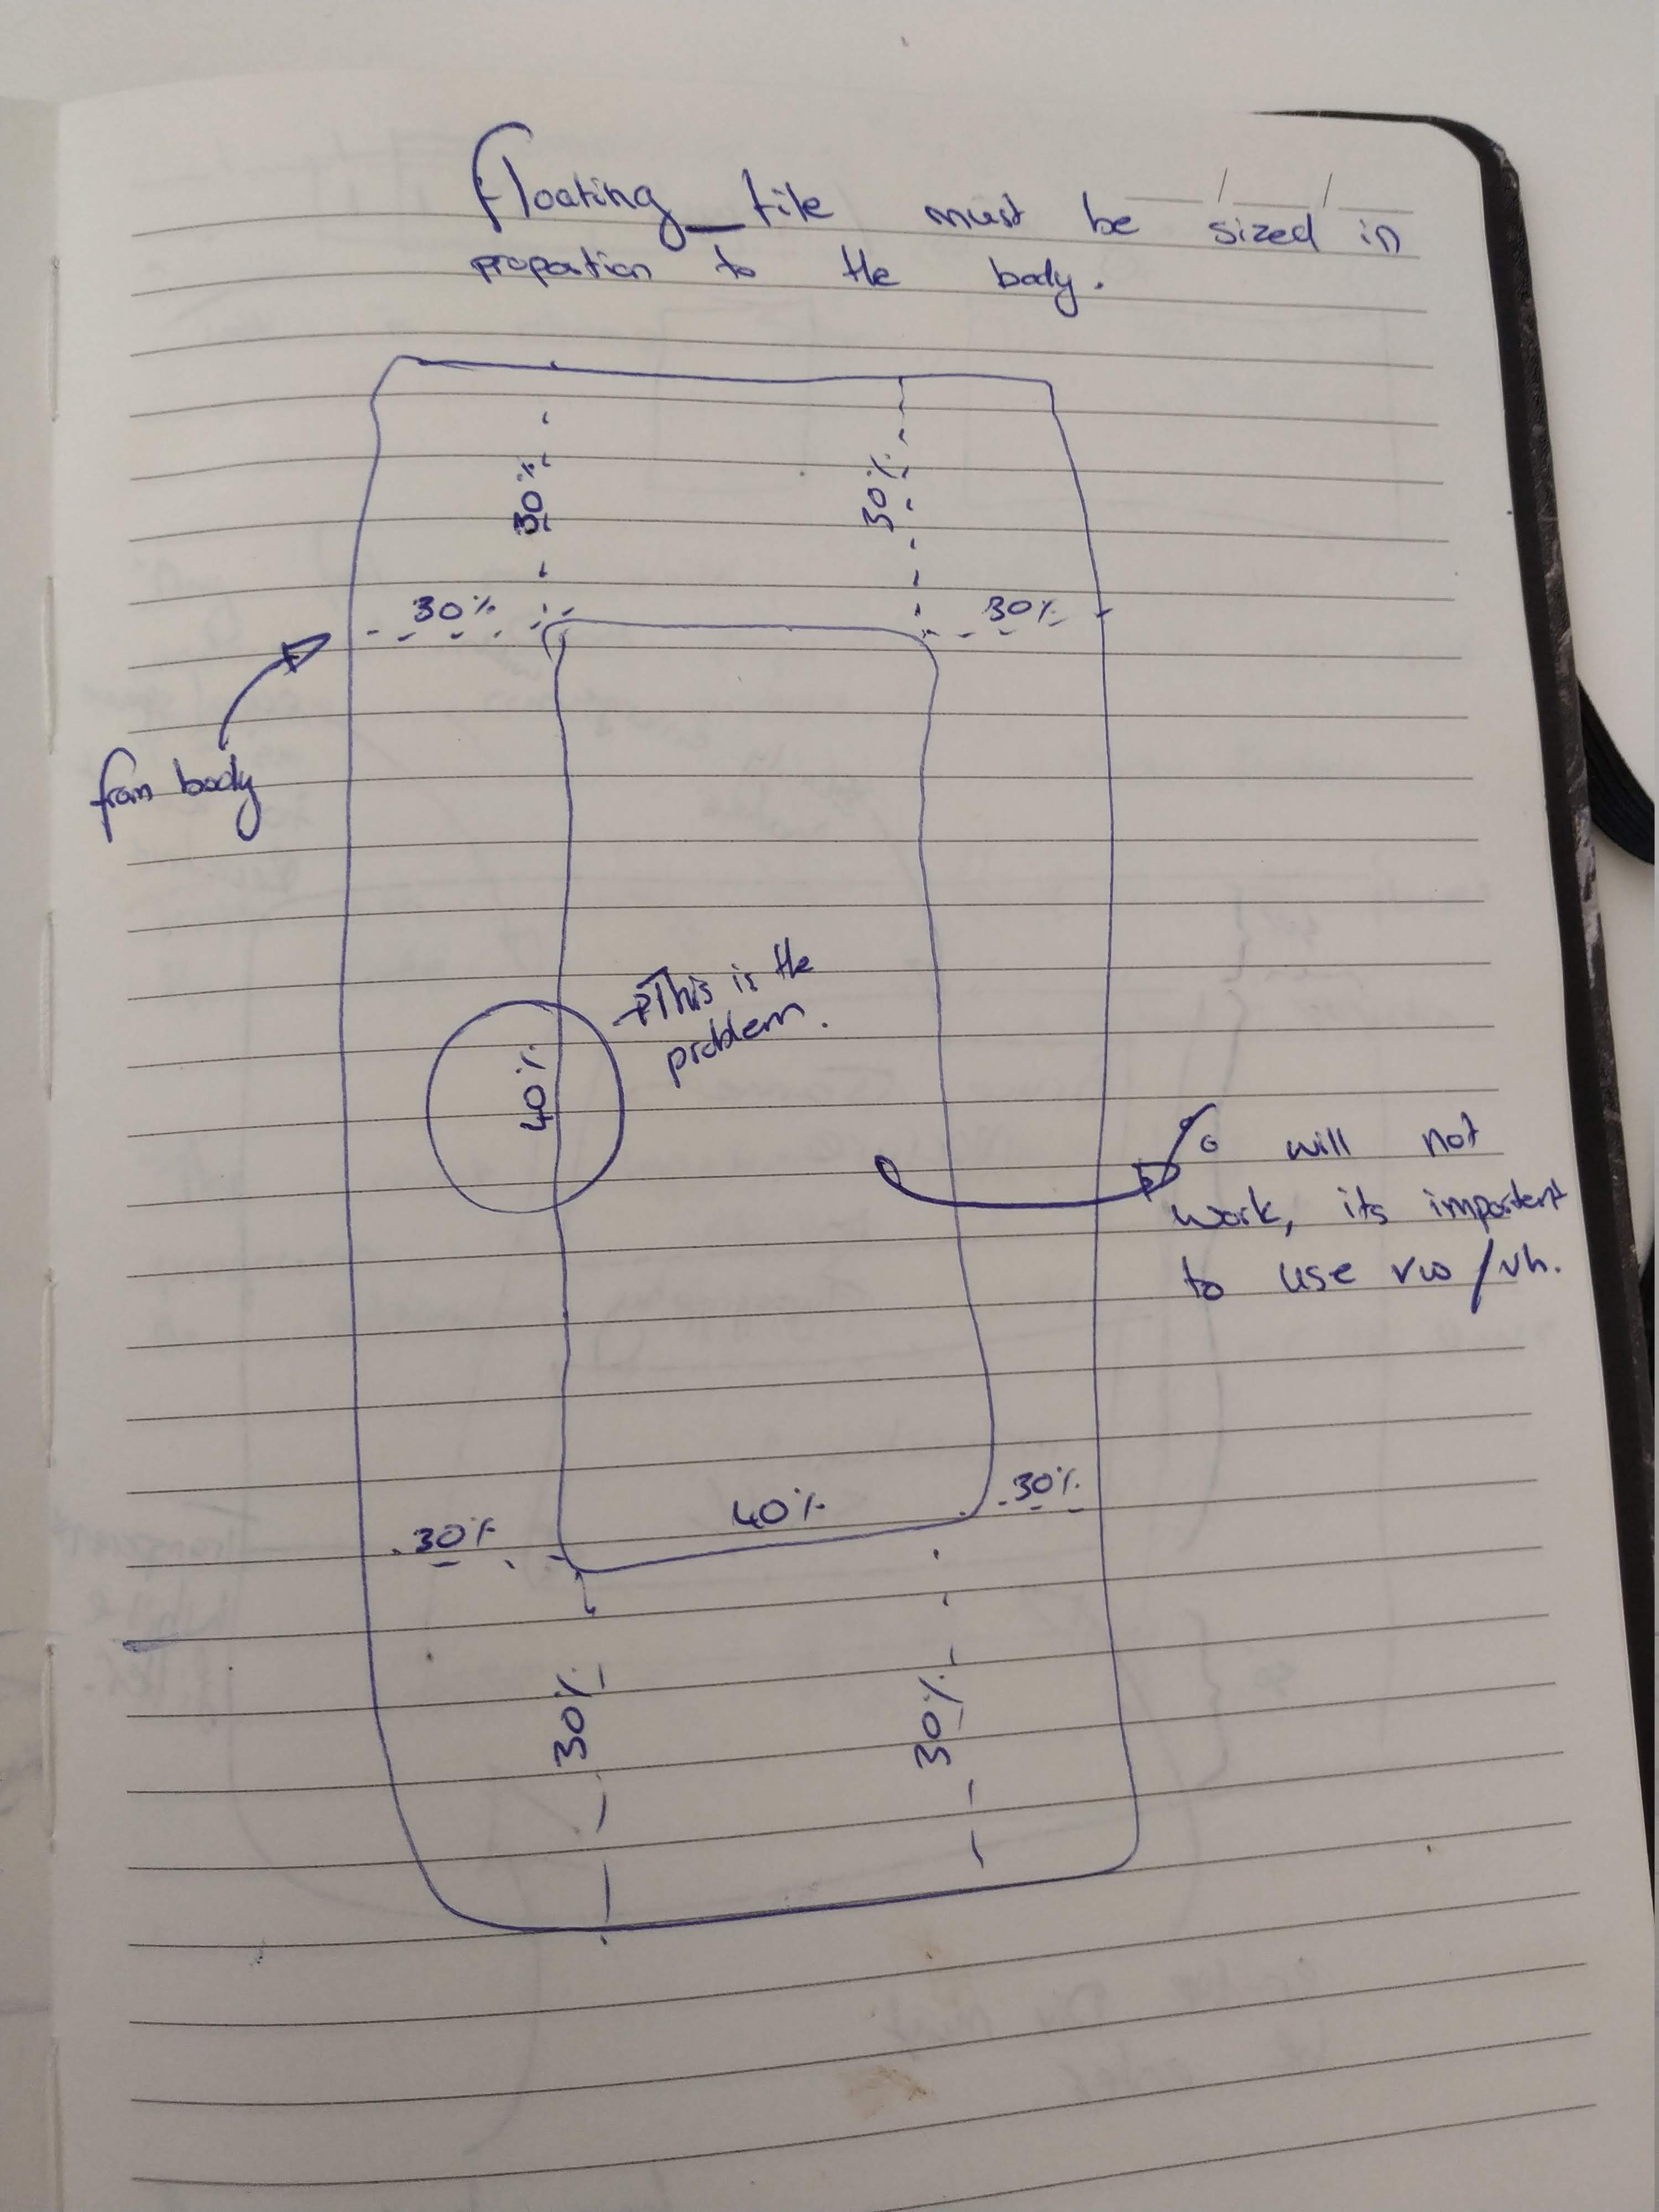 floating_tile must be sized in
proportion to the body.
30%
30%
30%
30%
from body
This is the
problem.
40%
% will not
work, its important
to use vw/vh.
40%
30%
30%
30%
30%